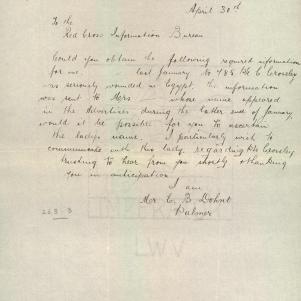 April 30th
To the
Red Cross Information Bureau
Could you obtain the following required information
for me. last January No 785 Pte C Crossley
was seriously wounded in Egypt, the information
was sent to Mrs whose name appeared
in the Advertiser during the latter end of January,
would it be possible for you to ascertain
the ladys name. I particularly wish to
communicate with this lady regarding Pte Crossley
Trusting to hear from you shortly & thanking
you in anticipation
I am
Mrs C B Dohnt
Palmer